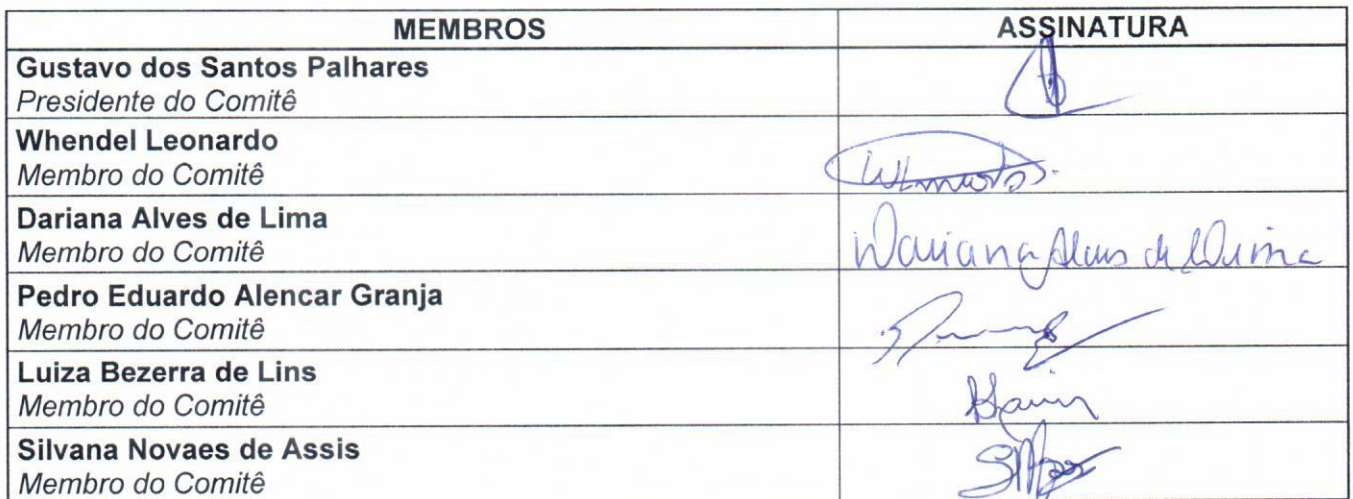 MEMBROS ASSINATURA
Gustavo dos Santos Palhares
Presidente do Comitê
Whendel Leonardo
Membro do Comitê
Dariana Alves de Lima
Membro do Comitê
Dariana Alves de Lima
Pedro Eduardo Alencar Granja
Membro do Comitê
Luiza Bezerra de Lins
Membro do Comitê
Silvana Novaes de Assis
Membro do Comitê